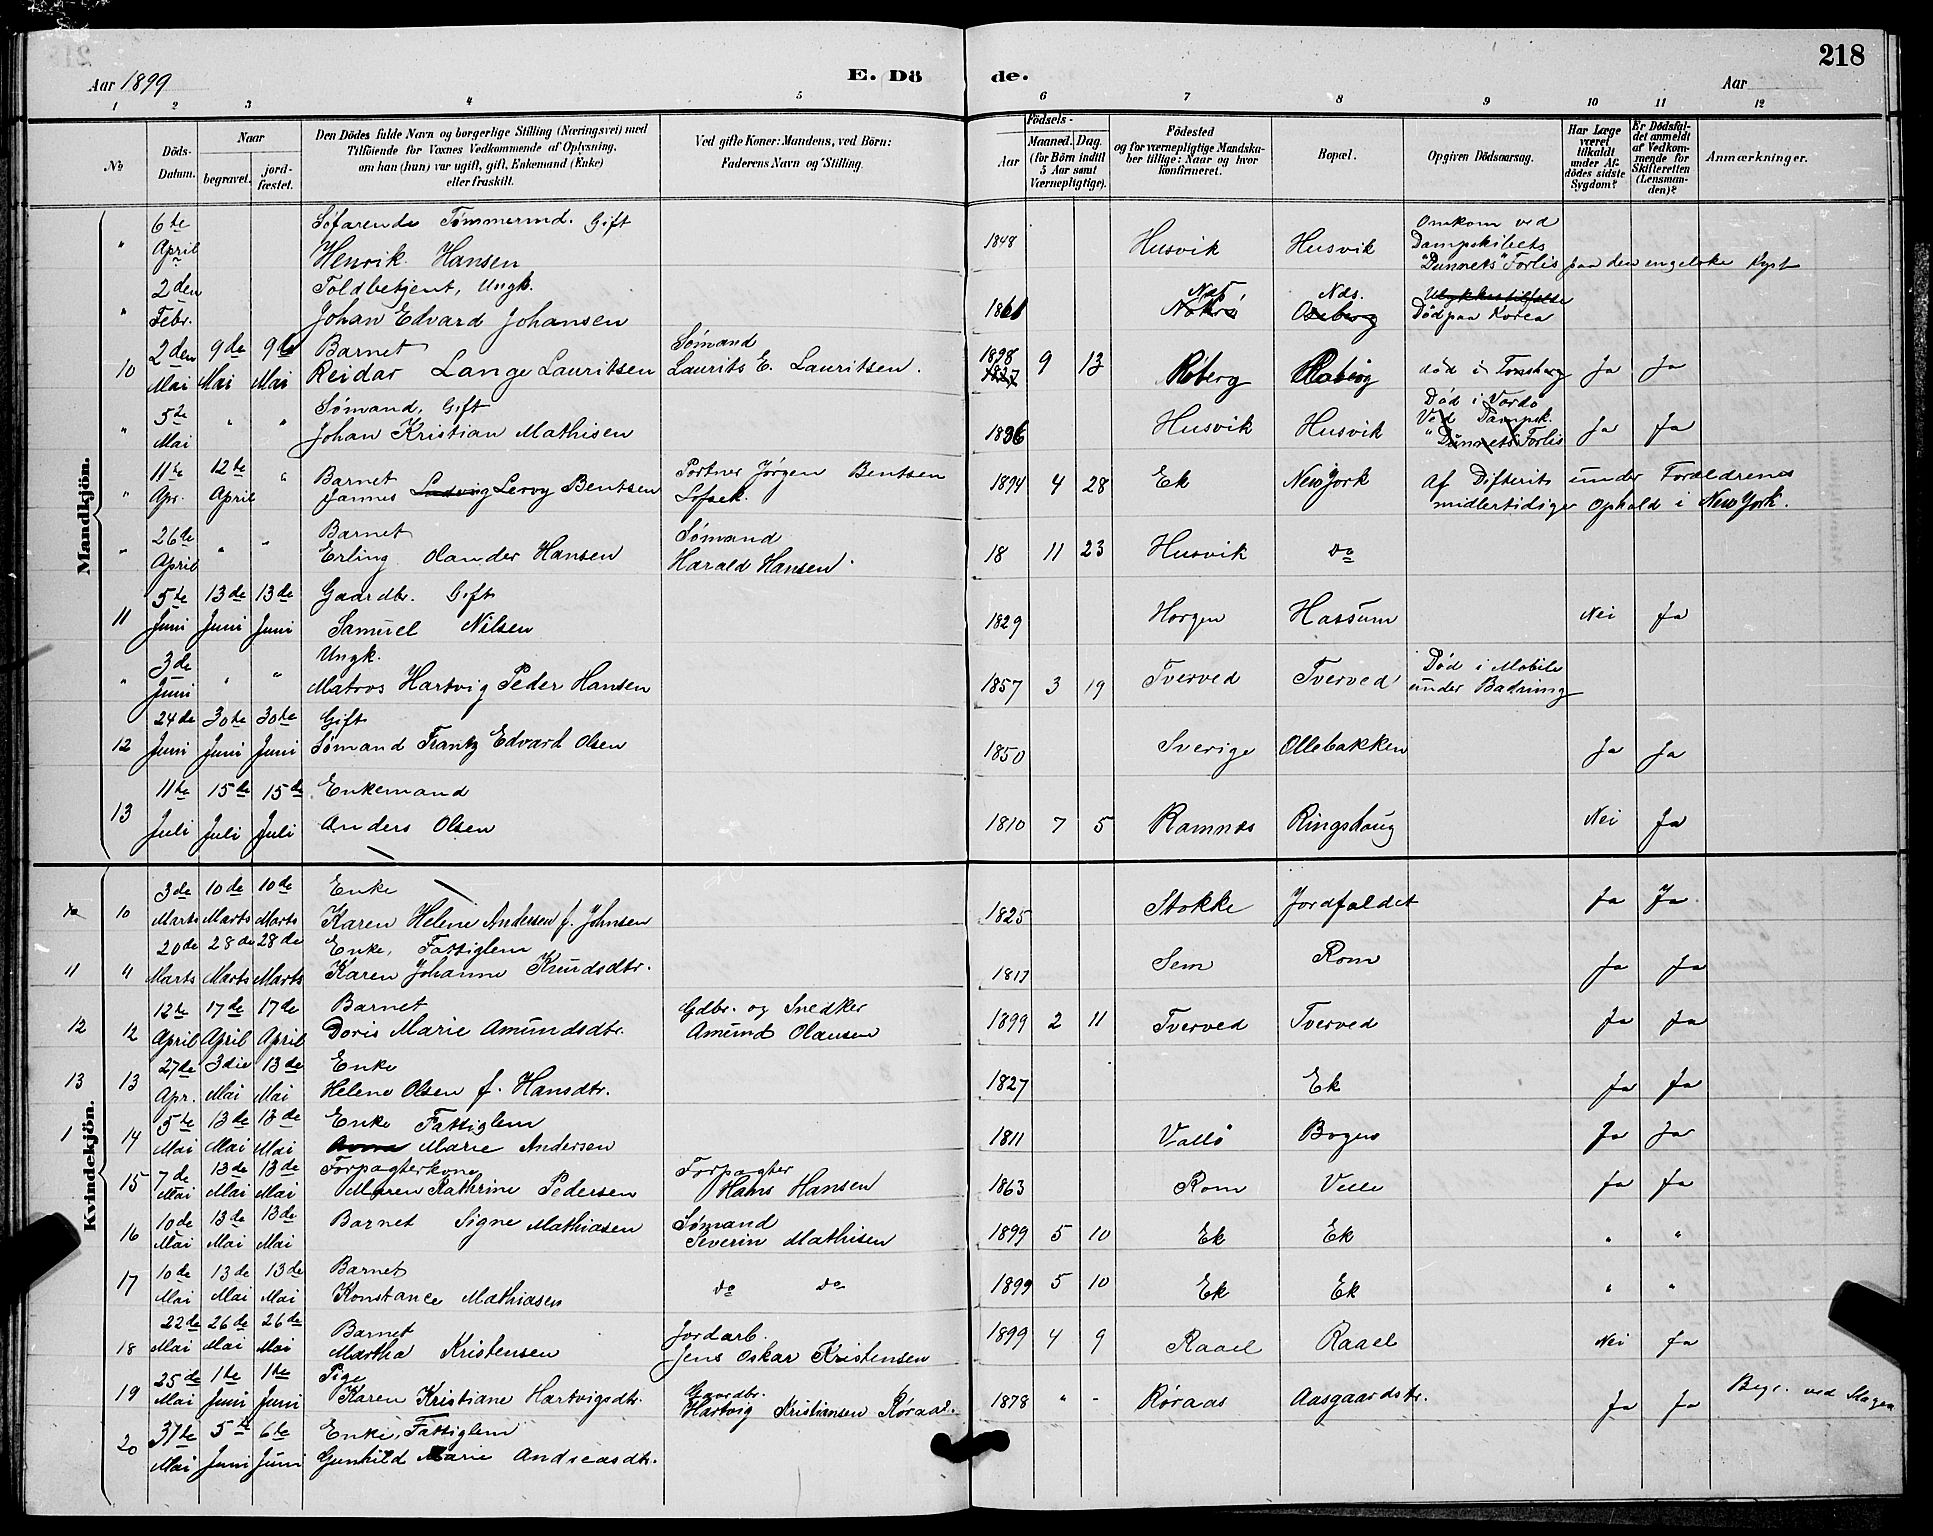 218
Aar 1899
E. Dö de.
Aar
1 2 3 4 5 6 7 8 9 10 11 12
No
Döds-Datum.
Naar
begravet.
jord-fæstet.
Den Dödes fulde Navn og borgerlige Stilling (Næringsvei) med
Tilföiende for Voxnes Vedkommende af Oplysning,
om han (hun) var ugift, gift, Enkemand (Enke)
eller fraskilt.
Ved gifte Koner: Mandens, ved Börn:
Faderens Navn og Stilling.
Födsels-
Aar
Maaned. Dag.
(for Börn indtil
5 Aar samt
Værnepligtige).
Födested
og for værnepligtige Mandska-
ber tillige: Naar og hvor
konfirmeret.
Bopæl.
Opgiven Dödsaarsag.
Har Læge
været
tilkaldt
under Af-
dödes sidste
Sygdom?
Er Dödsfal-
det anmeldt
af Vedkom-
mende for
Skifteretten
(Lensman-
den)?
Anmærkninger.
Mandkjön.
" 6te April Söfarende Tömmermd. Gift Henrik Hansen 1848 Husvik Husvik Omkom ved Dampskibets "Dunnets" Forlis paa den engelske Kyst
" 2den Febr. Toldbetjent, Ungk. Johan Edvard Johansen 1861 Nds. Død paa Korea
10 2den Mai 9de Mai 9de Mai Barnet Reidar Lange Lauritsen Sømand Laurits E. Lauritsen. 1898 9 13 Røberg Røberg død i Tonsberg Ja Ja
" 5te Mai " " Sømand, Gift Johan Kristian Mathisen 1836 Husvik Husvik Død i Vardø Ved Dampsk. "Dunnets" Forlis Ja Ja
" 11te Apr. 12te April " Barnet Jannes Ludvig Leroy Bentsen Portner Jørgen Bentsen 1894 4 28 Ek New York Af Difterits under Forældrenes midlertidige Ophold i New York.
" 26de April " " Barnet Erling Olander Hansen Sømand Harald Hansen 18 11 23 Husvik do
11 5te Juni 13de Juni 13de Juni Gaardbr. Gift Samuel Nilsen 1829 Horgen Hassum Nei Ja
" 3de Juni " " Ungk. Matros Hartvig Peder Hansen 1857 3 19 Tverved Tverved Død i Mobile under Badning
12 24de Juni 30te Juni 30te Juni Gift Sømand Frantz Edvard Olsen 1850 Sverige Ollebakken Ja Ja
13 11te Juli 15de Juli 15de Juli Enkemand Anders Olsen 1810 7 5 Ramnæs Ringshaug Nei Ja
Kvindekjön.
10 3de Marts 10de Marts 10de Marts Enke Karen Helene Andersen f. Johnsen 1825 Stokke Jordfaldet Ja Ja
11 11 20de Marts 28de Marts 28de Marts Enke, Fattiglem Karen Johanne Knudsdtr. 1817 Sem Rom Ja Ja
12 12 12te April 17de April 17de April Barnet Doris Marie Amundsdtr. Gdbr. og Snedker Amund Olausen 1899 2 11 Tverved Tverved Ja Ja
13 13 27de Apr. 3die Mai 13de Mai Enke Helene Olsen f. Hansdtr. 1827 Ek Ja Ja
1 14 5te Mai 13de Mai 13de Mai Enke Fattiglem Anna Marie Andersen 1811 Vallø Bogen Ja Ja
15 7de Mai 13de Mai 13de Mai Forpagterkone Maren Kathrine Pedersen Forpagter Hans Hansen 1863 Rom Velle Ja Ja
16 10de Mai 13de Mai 13de Mai Barnet Signe Mathiasen Sømand Severin Mathisen 1899 5 10 Ek Ek " "
17 10de Mai 13de Mai 13de Mai Barnet Konstance Mathiasen do do 1899 5 10 Ek Ek " "
18 22de Mai 26de Mai 26de Mai Barnet Martha Kristensen Jordarb. Jens Oskar Kristensen 1899 4 9 Raael Raael Nei Ja
19 25de Mai 1te Juni 1te Juni Pige Karen Kristiane Hartvigsdtr. Gaardbr. Hartvig Kristiansen Røraas. 1878 " - Røraas Aasgaardstr. Ja Ja Begr. ved Slagen
20 31te Mai 5te Juni 6te Juni Enke, Fattiglem Gunhild Marie Andreasdtr.